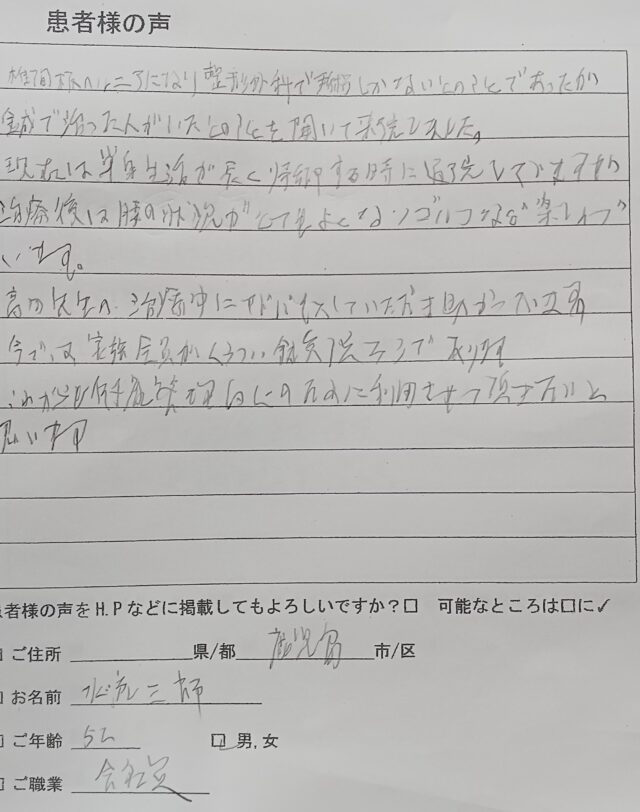 患者様の声
椎間板ヘルニアになり整形外科で手術しかないとのことであったが
鍼灸で治った人がいたとのことを聞いて来院しました。
現在は単身生活が長く帰郷する時に通院していますが
治療後は腰の状況がとてもよくなりゴルフなど楽しんで
います。
先生へ 治療中にアドバイスしていただき助かっています
今では家族全員が 鍼灸院 であります
これからも健康管理 のために利用させて頂きたいと
思います
患者様の声をH.Pなどに掲載してもよろしいですか?□ 可能なところは□に✓
□ご住所 県/都 鹿児島 市/区
□お名前
□ご年齢 52 □男,女
□ご職業 会社員